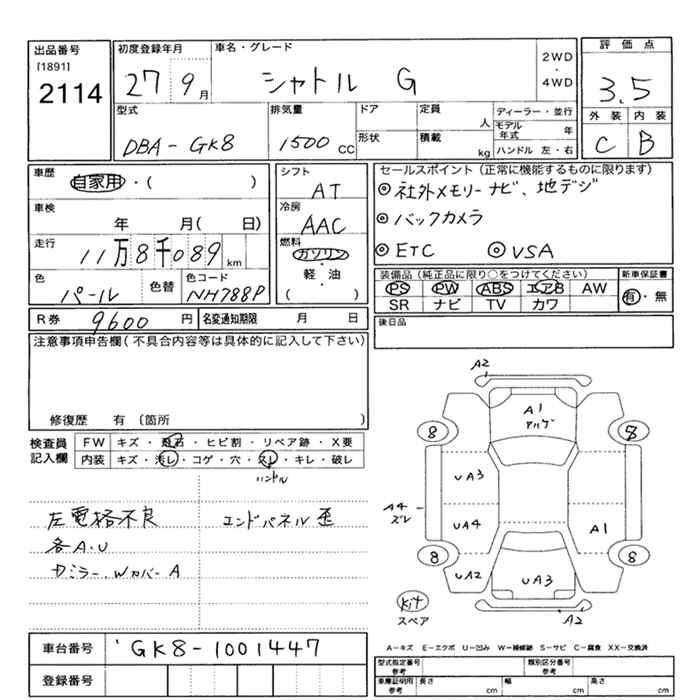 出品番号
[1891]
2114
初度登録年月
27 9月
車名・グレード
シャトル G
2WD
・
4WD
評価点
3.5
外装 内装
C B
型式
DBA-GK8
排気量
1500 CC
ドア
形状
定員
人
積載
kg
ディーラー・並行
モデル年式 年
ハンドル 左・右
車歴
自家用・( )
車検
年 月( 日)
走行
11万8千089 km
色
パール
色替
色コード
NH788P
シフト
AT
冷房
AAC
燃料
ガソリン
・
軽・油
( )
セールスポイント(正常に機能するものに限ります)
◎社外メモリーナビ、地デジ
◎バックカメラ
◎ETC ◎VSA
装備品(純正品に限り○をつけてください)
PS PW ABS エアB AW
SR ナビ TV カワ
新車保証書
有・無
R券 9600 円
名変通知期限 月 日
後日品
注意事項申告欄(不具合内容等は具体的に記入して下さい)
修復歴 有(箇所 )
検査員
記入欄
FW キズ・飛石・ヒビ割・リペア跡・X要
内装 キズ・汚レ・コゲ・穴・スレ・キレ・破レ
ハンドル
左電格不良
各A.U
エンドパネル歪
A2
A1
8
8
UA3
A4
ズレ
UA4
A1
8
8
UA2
UA3
kit
スペア
A2
車台番号
GK8-1001447
登録番号
A-キズ E-エクボ U-凹み W-補修跡 S-サビ C-腐食 XX-交換済
型式指定番号
参考
類別区分番号
参考
車庫証明用
参考
長さ cm
幅 cm
高さ cm